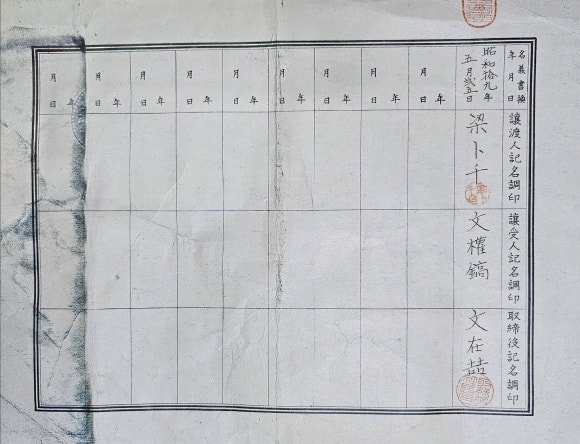 名義書換
年月日
讓渡人記名調印
讓受人記名調印
取締役記名調印
昭和拾九年
五月弐五日
梁卜千
文權鎬
文在喆
年
月 日
年
月 日
年
月 日
年
月 日
年
月 日
年
月 日
年
月 日
年
月 日
年
月 日